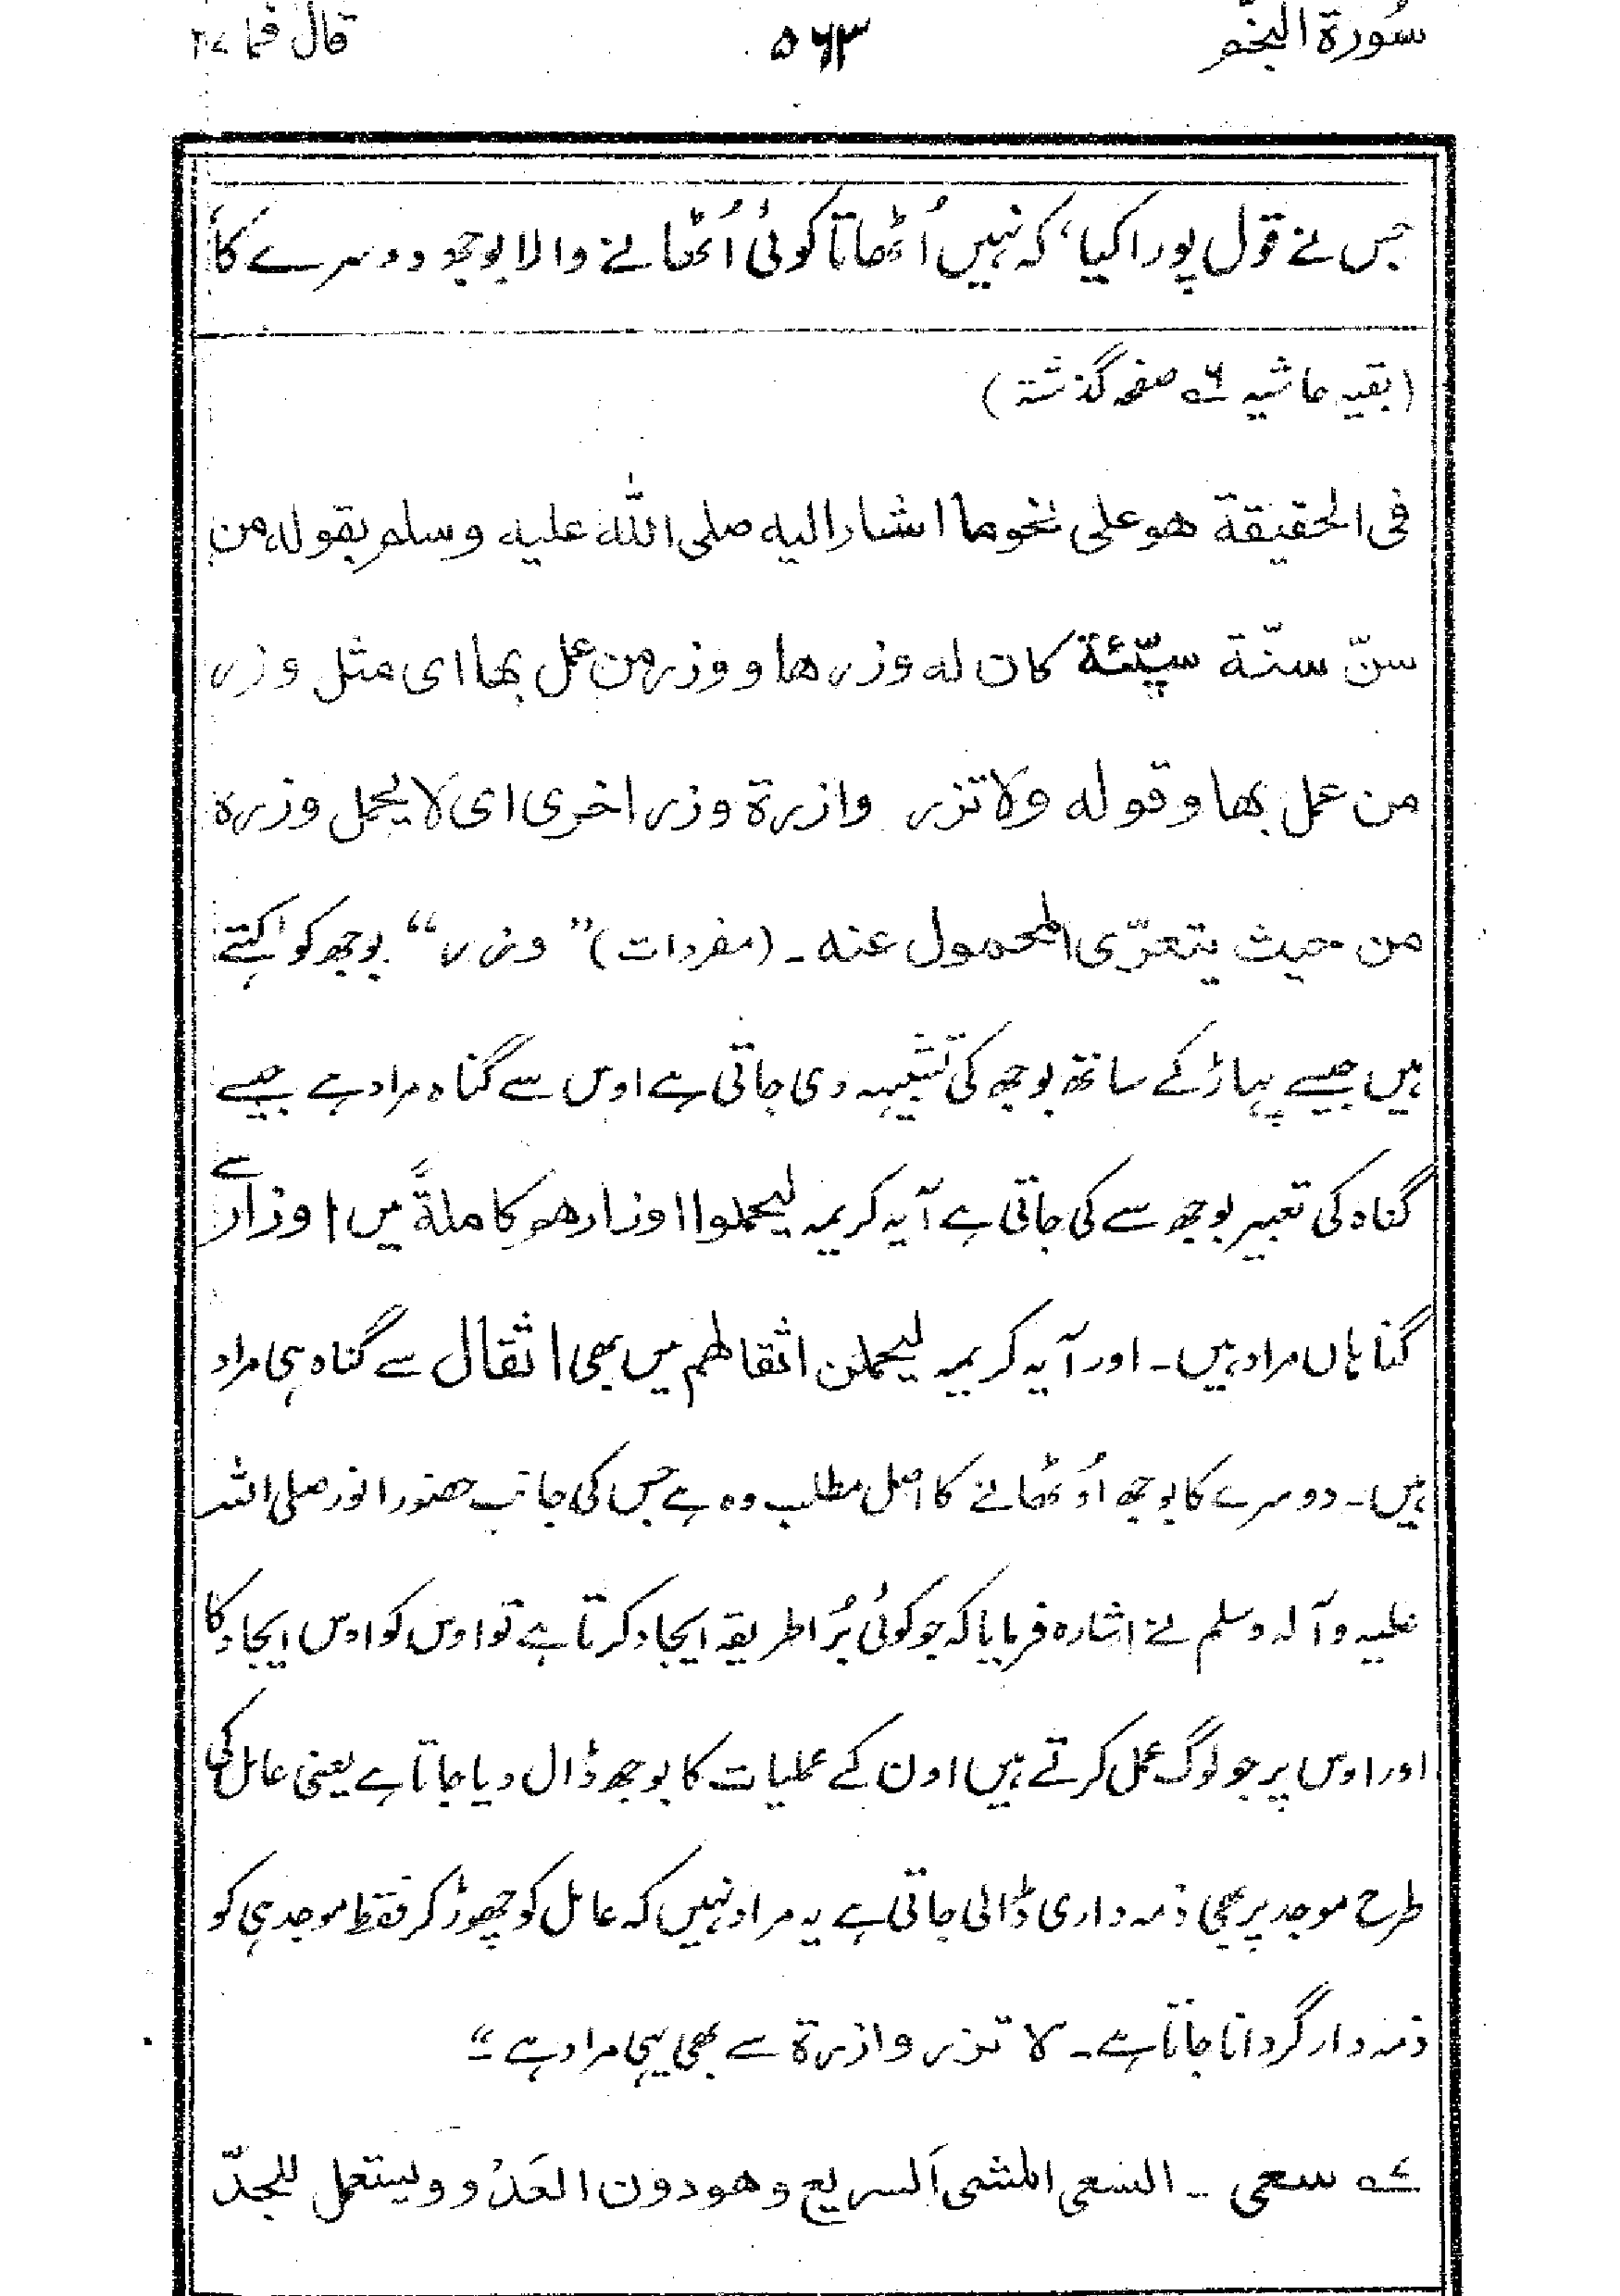 سُورۃ النجم ۵۶۳ قال فما ۲۷
جس نے قول پورا کیا، کہ نہیں اُٹھاتا کوئی اُٹھانے والا بوجھ دوسرے کا
(بقیہ حاشیہ ۶ صفحہ گذشتہ)
فی الحقیقة هو علی نحو ما اشار الیه صلی اللّٰه علیه وسلم بقوله من
سنّ سنّة سیّئة کان له وزرها و وزر من عمل بها ای مثل وزر
من عمل بها وقوله ولا تزر وازرة وزر اخری ای لا یحمل وزره
من حیث یتعرّی المحمول عنه ۔ (مفردات) ”وزر“ بوجھ کو کہتے
ہیں جیسے پہاڑ کے ساتھ بوجھ کی تشبیہہ دی جاتی ہے اوس سے گناہ مراد ہے جیسے
گناہ کی تعبیر بوجھ سے کی جاتی ہے آیہ کریمہ لیحملوا اوزارهم کاملةً میں اوزار سے
گناہاں مراد ہیں۔ اور آیہ کریمہ لیحملن اثقالهم میں بھی اثقال سے گناہ ہی مراد
ہیں۔ دوسرے کا بوجھ اوٗٹھانے کا اصل مطلب وہ ہے جس کی جانب حضور انور صلی اللہ
علیہ وآلہ وسلم نے اشارہ فرمایا کہ جو کوئی بُرا طریقہ ایجاد کرتا ہے تو اوس کو اوس ایجاد کا
اور اوس پر جو لوگ عمل کرتے ہیں اون کے عملیات کا بوجھ ڈال دیا جاتا ہے یعنی عامل کی
طرح موجد پر بھی ذمہ داری ڈالی جاتی ہے یہ مراد نہیں کہ عامل کو چھوڑ کر فقط موجد ہی کو
ذمہ دار گردانا جاتا ہے۔ لا تزر وازرة سے بھی یہی مراد ہے ؎“
؎ سعی ۔ السَعی المشی السریع وهو دون العَدْو ویستعمل للجدّ